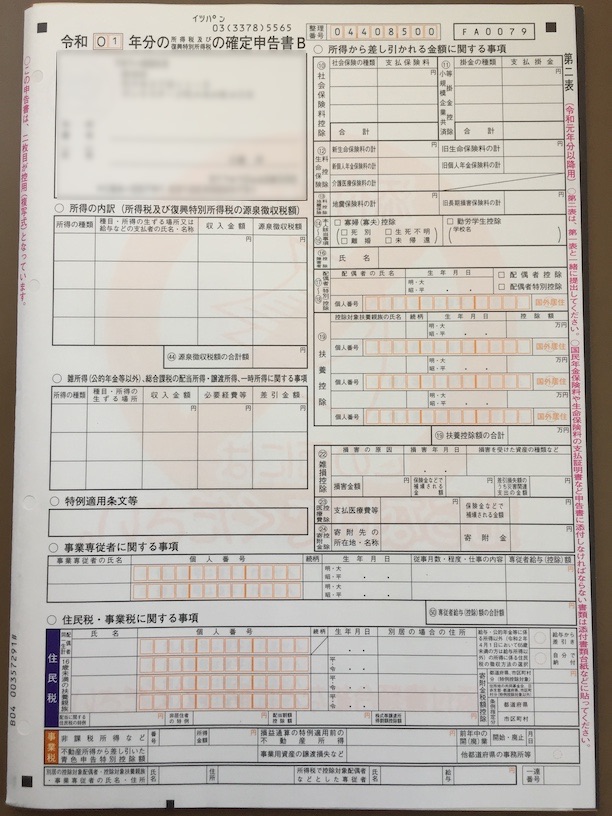 イツパン
03(3378)5565
整理番号 04408500 FA0079
令和 01 年分の所得税及び復興特別所得税の確定申告書B
第二表
(令和元年分以降用)
○この申告書は、二枚目が控用(複写式)となっています。
○第二表は、第一表と一緒に提出してください。
○国民年金保険料や生命保険料の支払証明書など申告書に添付しなければならない書類は添付書類台紙などに貼ってください。
○ 所得の内訳(所得税及び復興特別所得税の源泉徴収税額)
所得の種類 種目・所得の生ずる場所又は給与などの支払者の氏名・名称 収入金額 源泉徴収税額
円 円
㊹ 源泉徴収税額の合計額 円
○ 雑所得(公的年金等以外)、総合課税の配当所得・譲渡所得、一時所得に関する事項
所得の種類 種目・所得の生ずる場所 収入金額 必要経費等 差引金額
円 円 円
○ 特例適用条文等
○ 所得から差し引かれる金額に関する事項
⑩ 社会保険料控除 社会保険の種類 支払保険料
円
合計
⑪ 小規模企業共済等掛金控除 掛金の種類 支払掛金
円
合計
⑫ 生命保険料控除 新生命保険料の計 円 旧生命保険料の計 円
新個人年金保険料の計 旧個人年金保険料の計
介護医療保険料の計
地震保険料の計 円 旧長期損害保険料の計 円
□ 寡婦(寡夫)控除 □ 勤労学生控除
□ 死別 □ 生死不明
□ 離婚 □ 未帰還
(学校名 )
氏名
配偶者の氏名 生年月日 □ 配偶者控除
明・大
昭・平 □ 配偶者特別控除
個人番号 国外居住
⑲ 扶養控除 控除対象扶養親族の氏名 続柄 生年月日 控除額
明・大
昭・平 万円
個人番号 国外居住
明・大
昭・平 万円
個人番号 国外居住
明・大
昭・平 万円
個人番号 国外居住
⑲ 扶養控除額の合計 万円
㉒ 雑損控除 損害の原因 損害年月日 損害を受けた資産の種類など
損害金額 円 保険金などで補填される金額 円 差引損失額のうち災害関連支出の金額 円
医療費控除 支払医療費等 円 保険金などで補填される金額 円
寄附金控除 寄附先の所在地・名称 寄附金 円
○ 事業専従者に関する事項
事業専従者の氏名 個人番号 続柄 生年月日 従事月数・程度・仕事の内容 専従者給与(控除)額
明・大
昭・平 円
明・大
昭・平
㊿ 専従者給与(控除)額の合計額 円
○ 住民税・事業税に関する事項
住民税 同一生計配偶者 氏名 個人番号 続柄 生年月日 別居の場合の住所
16歳未満の扶養親族
平・令
平・令
平・令
給与・公的年金等に係る所得以外(令和2年4月1日において65歳未満の方は給与所得以外)の所得に係る住民税の徴収方法の選択
給与から差引き
自分で納付
寄附金税額控除
都道府県
市区町村
配当に関する住民税の特例 円 非居住者の特例 円 配当割額控除額 円 株式等譲渡所得割額控除額 円
事業税 非課税所得など 番号 所得金額 円 損益通算の特例適用前の不動産所得 円 前年中の開(廃)業 開始・廃止 月日
不動産所得から差し引いた青色申告特別控除額 円 事業用資産の譲渡損失など 円 他都道府県の事務所等
別居の控除対象配偶者・控除対象扶養親族・事業専従者の氏名・住所 氏名 住所 所得税で控除対象配偶者などとした専従者 氏名 給与 円 一連番号
B04 00357291#